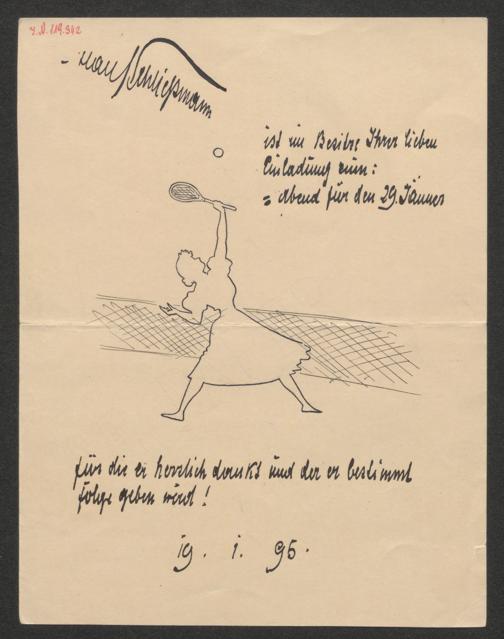 I.N. 119.342
Hans Schließmann
ist im Besitze Ihrer lieben
Einladung zum:
= abend für den 29. Jänner
für die er herzlich dankt und der er bestimmt
folge geben wird!
19. 1. 96.